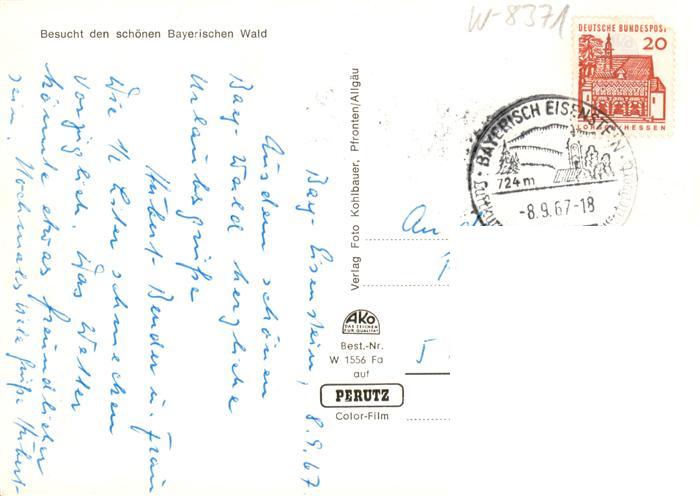 W-8371
Besucht den schönen Bayerischen Wald
DEUTSCHE BUNDESPOST
20
LORSCH/HESSEN
BAYERISCH EISENSTEIN
724m
-8.9.67-18
Luftkurort
Bay. Eisenstein, 8.9.67.
Aus dem schönen
Bay. Wald herzliche
Urlaubsgrüße
Hubert Bender u. Frau
Die 1/2 Liter schmecken
vorzüglich. Das Wetter
könnte etwas freundlicher
sein. Nochmals viele Grüße Hubert
Verlag Foto Kohlbauer, Pfronten/Allgäu
An
AKO
DAS ZEICHEN
FÜR QUALITÄT
Best.-Nr.
W 1556 Fa
auf
PERUTZ
Color-Film
5